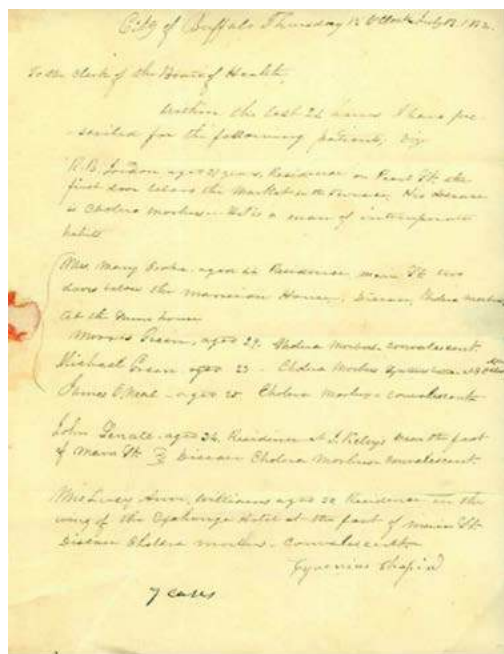 City of Buffalo Thursday 12 O'Clock July 1832.
To the Clerk of the Board of Health
Within the last 24 hours I have pre
-scribed for the following patients, viz
R.B. London aged years, Residence on Pearl St. the
first door below the Market on the Terrace. His disease
is Cholera morbus. He is a man of intemperate
habits
Mrs. Mary aged Residence main St two
doors below the mansion House. Disease, Cholera morbus
At the house
Morris Green, aged 29. Cholera Morbus. convalescent
Michael Green aged 23 - Cholera Morbus
James O'Neal - aged 20 Cholera Morbus - convalescent
John aged 24. Residence at near the foot
of Main St. Disease Cholera Morbus convalescent
Miss Lucy Ann, Williams aged 22 Residence in the
wing of the Exchange Hotel at the foot of main St.
Disease Cholera morbus. Convalescent
Cyrenius Chapin
7 cases